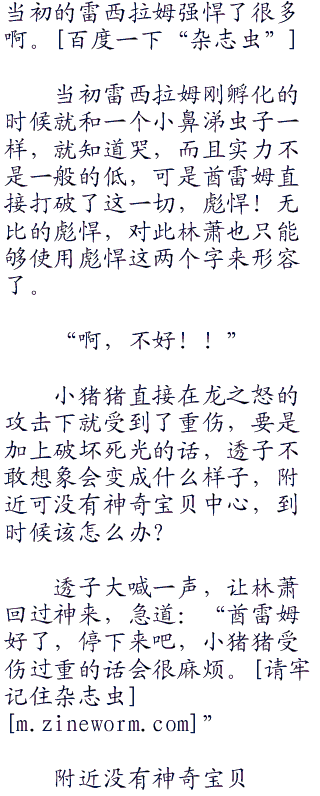 当初的雷西拉姆强悍了很多
啊。[百度一下“杂志虫”]
当初雷西拉姆刚孵化的
时候就和一个小鼻涕虫子一
样，就知道哭，而且实力不
是一般的低，可是酋雷姆直
接打破了这一切，彪悍！无
比的彪悍，对此林萧也只能
够使用彪悍这两个字来形容
了。
“啊，不好！！”
小猪猪直接在龙之怒的
攻击下就受到了重伤，要是
加上破坏死光的话，透子不
敢想象会变成什么样子，附
近可没有神奇宝贝中心，到
时候该怎么办？
透子大喊一声，让林萧
回过神来，急道：“酋雷姆
好了，停下来吧，小猪猪受
伤过重的话会很麻烦。[请牢
记住杂志虫]
[m.zineworm.com]”
附近没有神奇宝贝